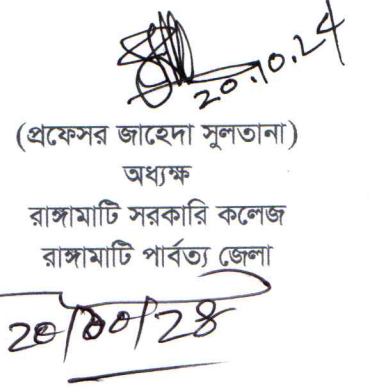 20.10.24
(প্রফেসর জাহেদা সুলতানা)
অধ্যক্ষ
রাঙ্গামাটি সরকারি কলেজ
রাঙ্গামাটি পার্বত্য জেলা